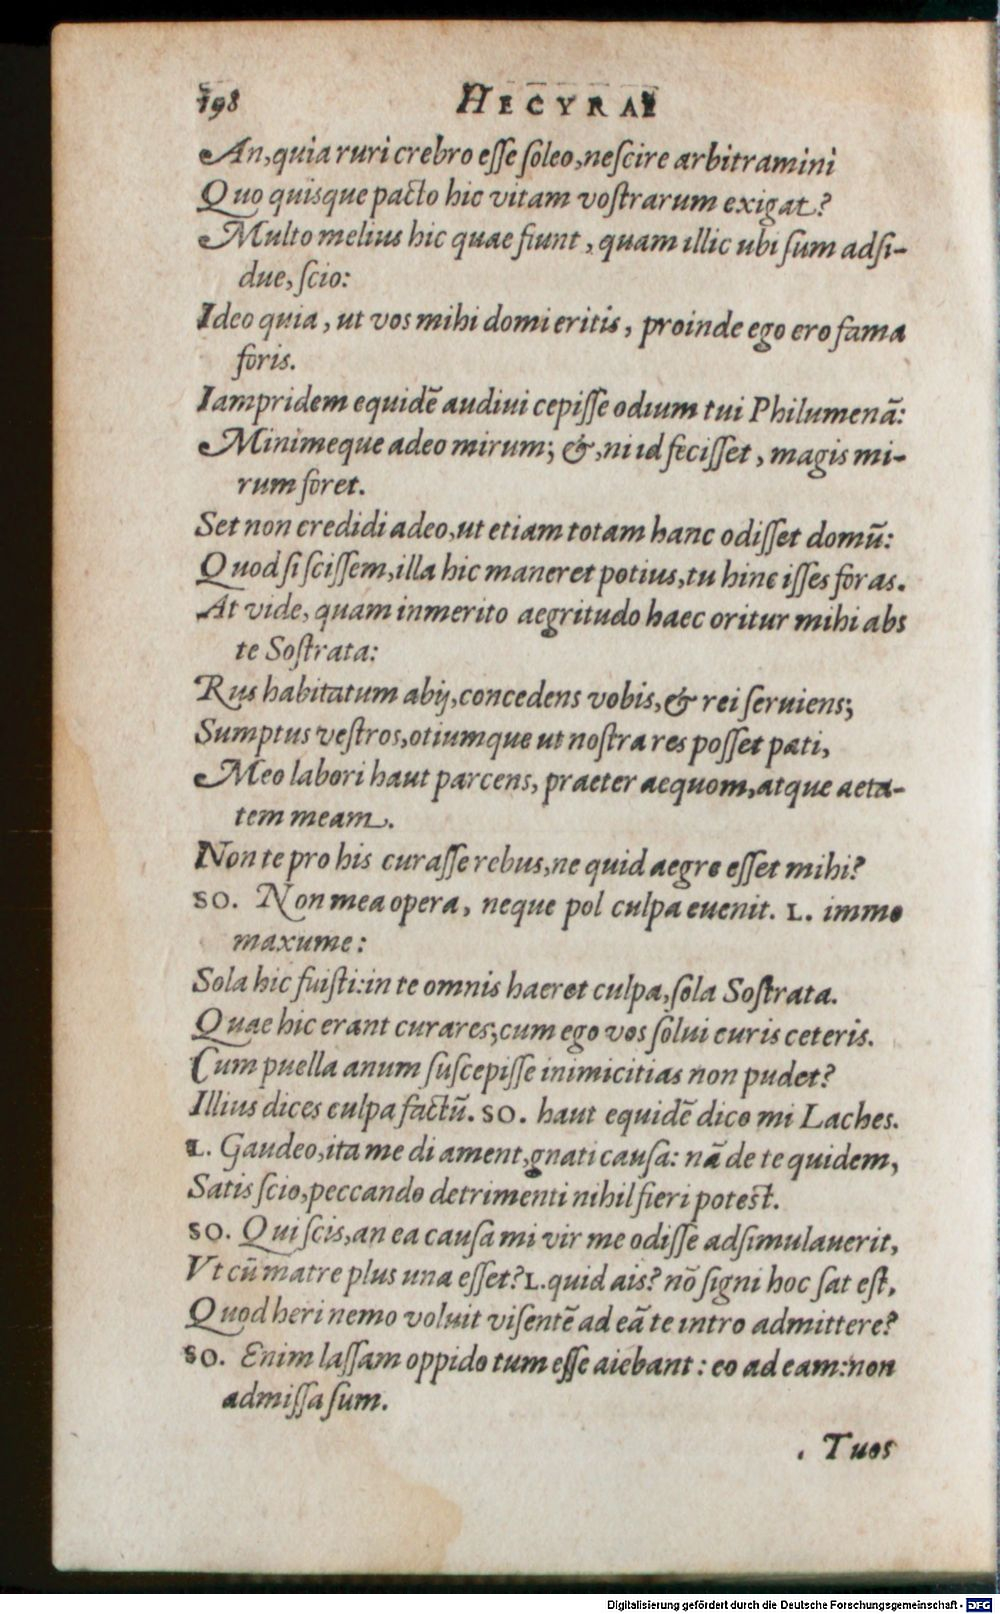 198 HECYRAE
An, quia ruri crebro eſſe ſoleo, neſcire arbitramini
Quo quisque pacto hic vitam voſtrarum exigat?
Multo melius hic quae fiunt, quam illic ubi ſum adſi-
due, ſcio:
Ideo quia, ut vos mihi domi eritis, proinde ego ero fama
foris.
Iampridem equidē audiui cepiſſe odium tui Philumenā:
Minimeque adeo mirum; &, ni id feciſſet, magis mi-
rum foret.
Set non credidi adeo, ut etiam totam hanc odiſſet domū:
Quod ſi ſciſſem, illa hic maneret potius, tu hinc iſſes foras.
At vide, quam inmerito aegritudo haec oritur mihi abs
te Soſtrata:
Rus habitatum abij, concedens vobis, & rei ſeruiens;
Sumptus veſtros, otiumque ut noſtra res poſſet pati,
Meo labori haut parcens, praeter aequom, atque aeta-
tem meam.
Non te pro his curaſſe rebus, ne quid aegre eſſet mihi?
SO. Non mea opera, neque pol culpa euenit. L. immo
maxume:
Sola hic fuiſti: in te omnis haeret culpa, ſola Soſtrata.
Quae hic erant curares; cum ego vos ſolui curis ceteris.
Cum puella anum ſuſcepiſſe inimicitias non pudet?
Illius dices culpa factū. SO. haut equidē dico mi Laches.
L. Gaudeo, ita me di ament, gnati cauſa: nā de te quidem,
Satis ſcio, peccando detrimenti nihil fieri poteſt.
SO. Qui ſcis, an ea cauſa mi vir me odiſſe adſimulauerit,
Vt cū matre plus una eſſet? L. quid ais? nō ſigni hoc ſat eſt,
Quod heri nemo voluit viſentē ad eā te intro admittere?
SO. Enim laſſam oppido tum eſſe aiebant: eo ad eam: non
admiſſa ſum.
Tuos
Digitalisierung gefördert durch die Deutsche Forschungsgemeinschaft - DFG